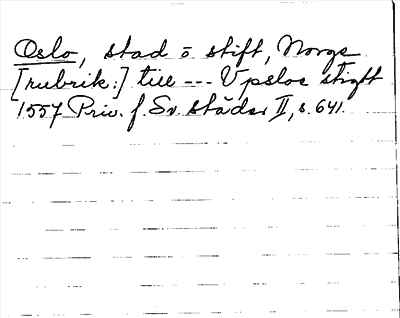 Oslo, stad o stift, Norge
[rubrik:] till --- Vpsloe stigtt
1557 Priv. f. Sv. städer II, s. 641.